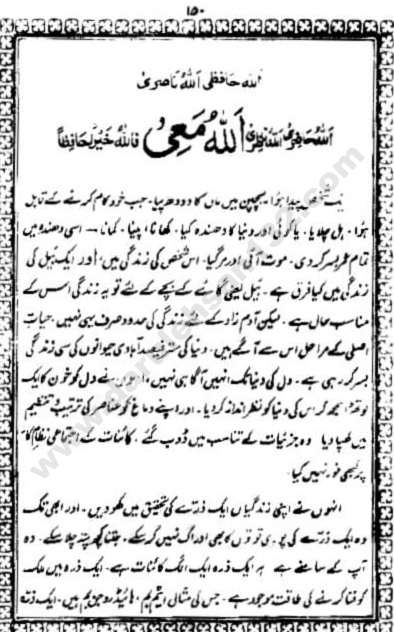 ۱۵۰
اللہ حافظی اللہ ناصری
اللہ حاضری اللہ ناظری اللہ معی فاللہ خیر لحافظاً
ایک شخص پیدا ہوا۔ بچپن میں ماں کا دودھ پیا۔ جب خود کام کرنے کے قابل
ہوا۔ ہل چلایا۔ یا کوئی اور دنیا کا دھندہ کیا۔ کھانا، پینا۔ کمانا — اسی دھندہ میں
تمام عمر بسر کر دی۔ موت آئی اور مر گیا۔ اس شخص کی زندگی میں، اور ایک بیل کی
زندگی میں کیا فرق ہے۔ بیل یعنی گائے کے بچے کے لئے تو یہ زندگی اس کے
مناسب حال ہے۔ لیکن آدم زاد کے لئے زندگی کی حدود صرف یہی نہیں۔ حیات
اصلی کے مراحل اس سے آگے ہیں۔ دنیا کی ستر فیصد آبادی حیوانوں کی سی زندگی
بسر کر رہی ہے۔ دل کی دنیا تک انہیں آگاہی نہیں۔ انہوں نے دل کو خون کا ایک
لوتھڑا سمجھ کر اس کی دنیا کو نظر انداز کر دیا۔ اور اپنے دماغ کو عناصر کی ترتیب و تنظیم
میں کھپا دیا۔ وہ جزئیات کے تناسب میں ڈوب گئے۔ کائنات کے اجتماعی نظام کا
پر کبھی غور نہیں کیا۔
انہوں نے اپنی زندگیاں ایک ذرے کی تحقیق میں کھو دیں۔ اور ابھی تک
وہ ایک ذرے کی پوری قوتوں کا بھی ادراک نہیں کر سکے۔ جتنا کچھ پتہ چلا سکے۔ وہ
آپ کے سامنے ہے ہر ایک ذرہ ایک الگ کائنات ہے۔ ایک ذرہ میں ملک
کو فنا کرنے کی طاقت موجود ہے۔ جس کی مثال ایٹم بم، ہائیڈروجن بم ہیں۔ ایک ذرہ